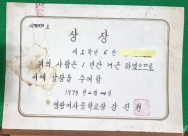 상장
제 2 학년 6 반
위의 사람은 1 년간 개근 하였으므로
이에 상장을 수여함
1979 년 월 일
여자중학교장 김 진